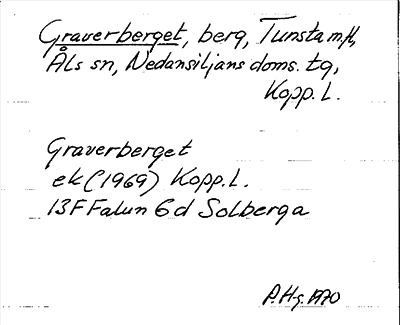 Graverberget, berg, Tunsta m.fl,
Åls sn, Nedansiljans doms. tg,
Kopp. L.
Graverberget
ek (1969) Kopp. L.
13F Falun 6d Solberga
P.Hg. 1970